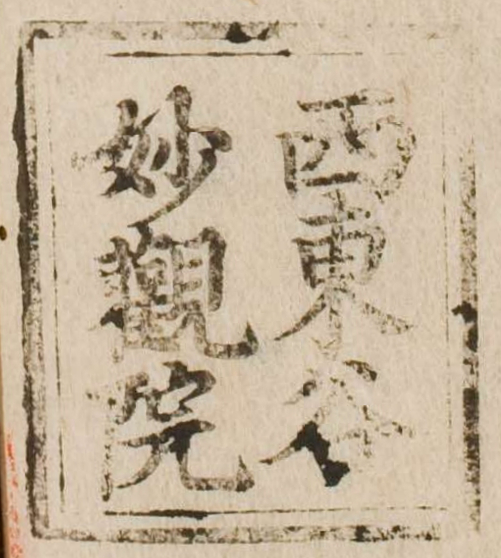 西東谷
妙觀院